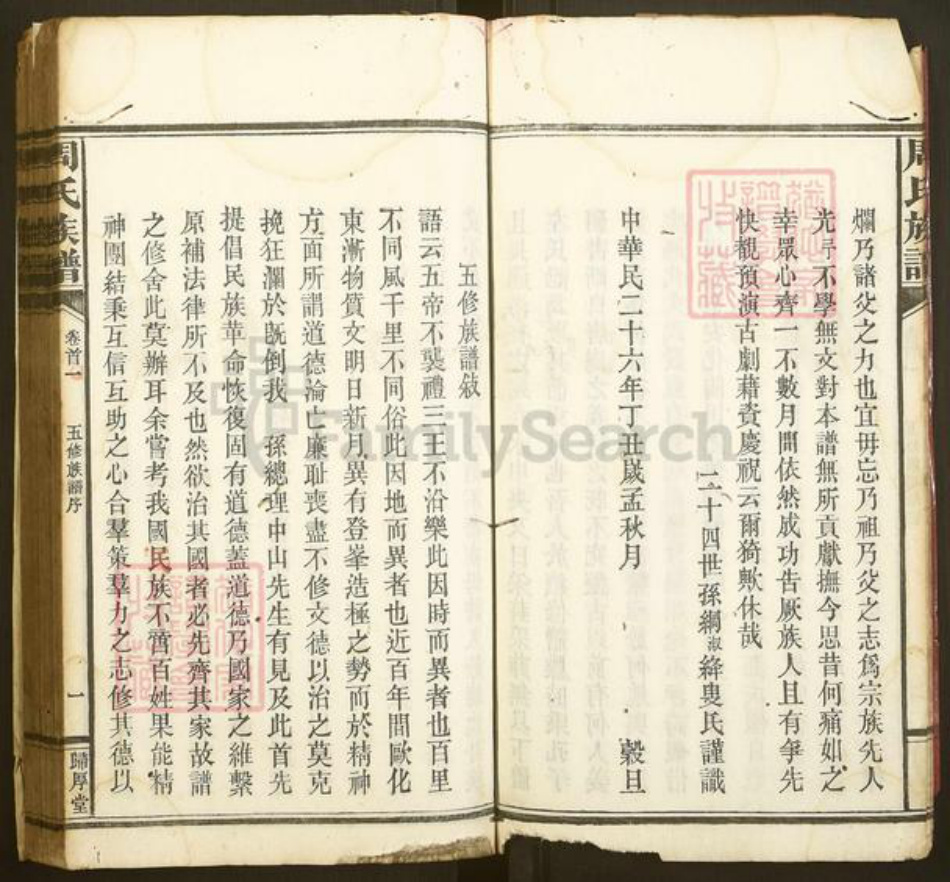 周氏族譜
爛乃諸父之力也宜毋忘乃祖乃父之志爲宗族先人
光予不學無文對本譜無所貢獻撫今思昔何痛如之
幸眾心齊一不數月間依然成功告厥族人且有爭先
快覩預演古劇藉資慶祝云爾猗歟休哉
二十四世孫綱淑絳叟氏謹識
中華民二十六年丁丑歲孟秋月 穀旦
五修族譜敘
語云五帝不襲禮三王不沿樂此因時而異者也百里
不同風千里不同俗此因地而異者也近百年間歐化
東漸物質文明日新月異有登峯造極之勢而於精神
方面所謂道德淪亡廉恥喪盡不修文德以治之莫克
挽狂瀾於既倒我 孫總理中山先生有見及此首先
提倡民族革命恢復固有道德蓋道德乃國家之維繫
原補法律所不及也然欲治其國者必先齊其家故譜
之修舍此莫辦耳余嘗考我國民族不啻百姓果能精
神團結秉互信互助之心合羣策羣力之志修其德以
周氏族譜
卷首一
五修族譜序
一
歸厚堂
FamilySearch